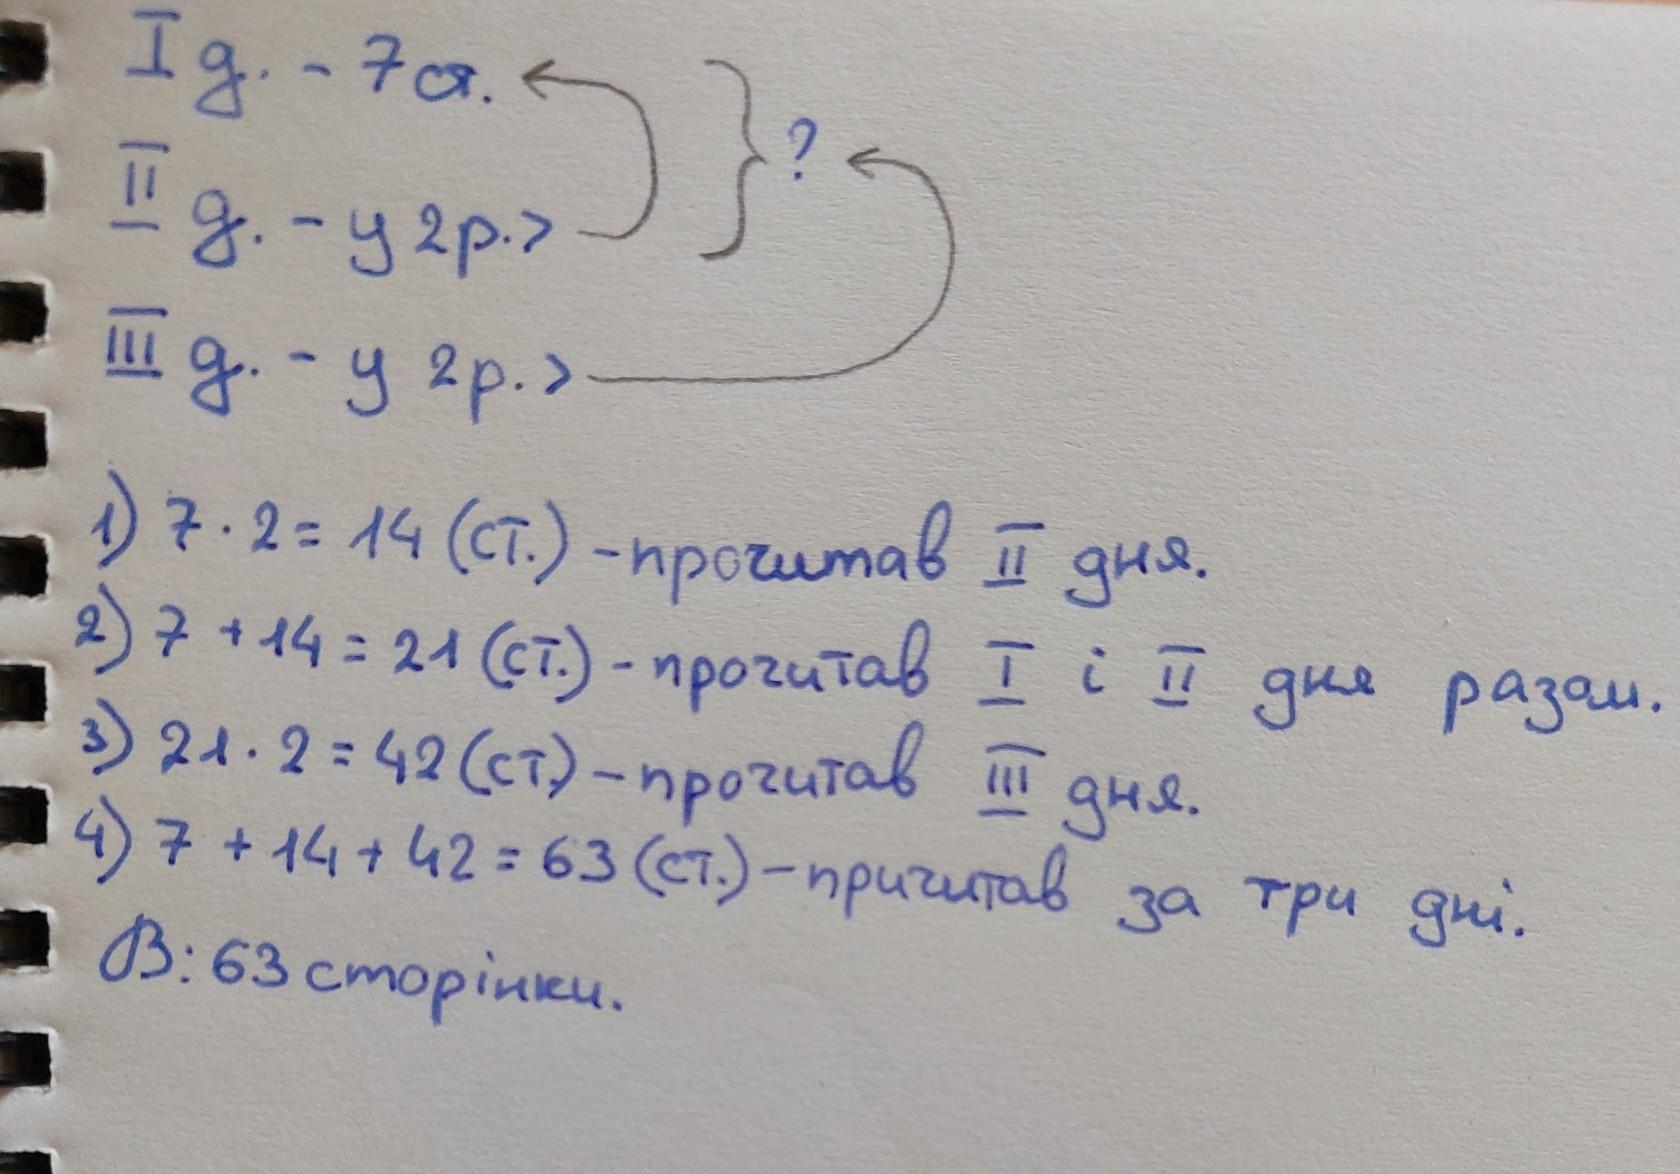 I д. - 7 ст.
II д. - у 2 р. >
III д. - у 2 р. >
?
1) 7 · 2 = 14 (ст.) - прочитав II дня.
2) 7 + 14 = 21 (ст.) - прочитав I і II дня разом.
3) 21 · 2 = 42 (ст.) - прочитав III дня.
4) 7 + 14 + 42 = 63 (ст.) - причитав за три дні.
В: 63 сторінки.